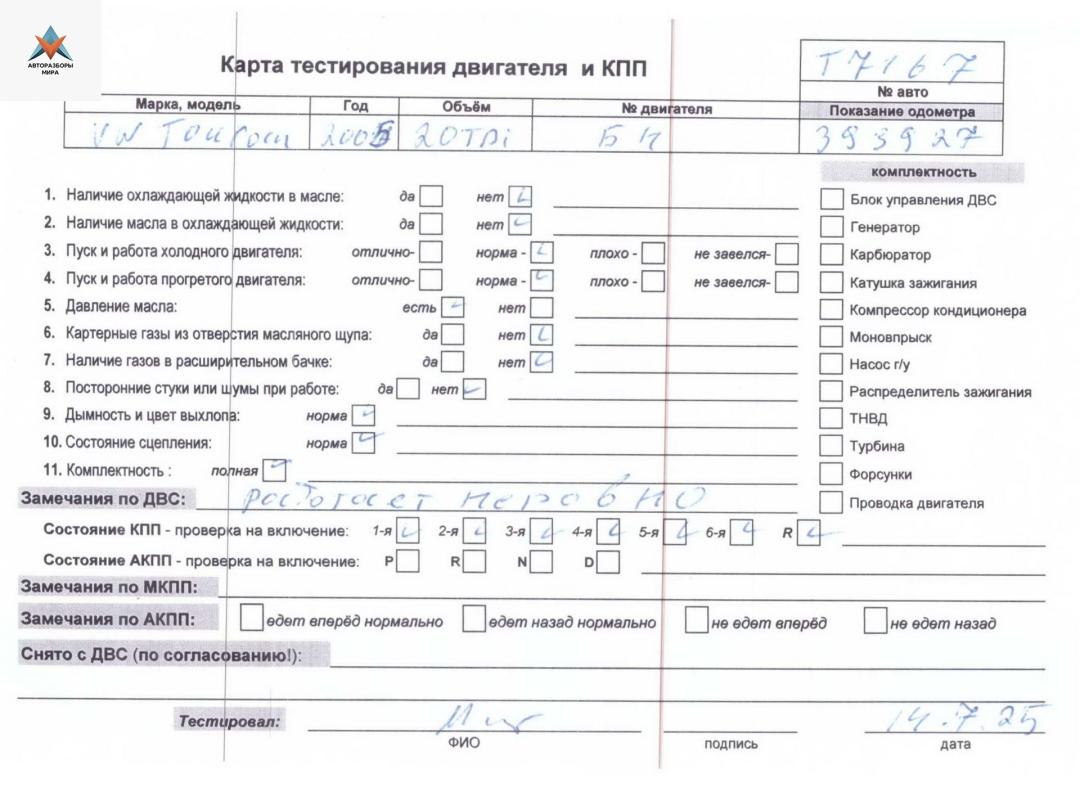 АВТОРАЗБОРЫ
МИРА
Карта тестирования двигателя и КПП
Т7167
№ авто
Марка, модель Год Объём № двигателя Показание одометра
VW Touran 2005 2.0TDi БН 393927
комплектность
1. Наличие охлаждающей жидкости в масле: да нет
2. Наличие масла в охлаждающей жидкости: да нет
3. Пуск и работа холодного двигателя: отлично- норма - плохо - не завелся-
4. Пуск и работа прогретого двигателя: отлично- норма - плохо - не завелся-
5. Давление масла: есть нет
6. Картерные газы из отверстия масляного щупа: да нет
7. Наличие газов в расширительном бачке: да нет
8. Посторонние стуки или шумы при работе: да нет
9. Дымность и цвет выхлопа: норма
10. Состояние сцепления: норма
11. Комплектность : полная
Блок управления ДВС
Генератор
Карбюратор
Катушка зажигания
Компрессор кондиционера
Моновпрыск
Насос г/у
Распределитель зажигания
ТНВД
Турбина
Форсунки
Проводка двигателя
Замечания по ДВС: работает неровно
Состояние КПП - проверка на включение: 1-я 2-я 3-я 4-я 5-я 6-я R
Состояние АКПП - проверка на включение: P R N D
Замечания по МКПП:
Замечания по АКПП: едет вперёд нормально едет назад нормально не едет вперёд не едет назад
Снято с ДВС (по согласованию!):
Тестировал: 14.7.25
ФИО подпись дата